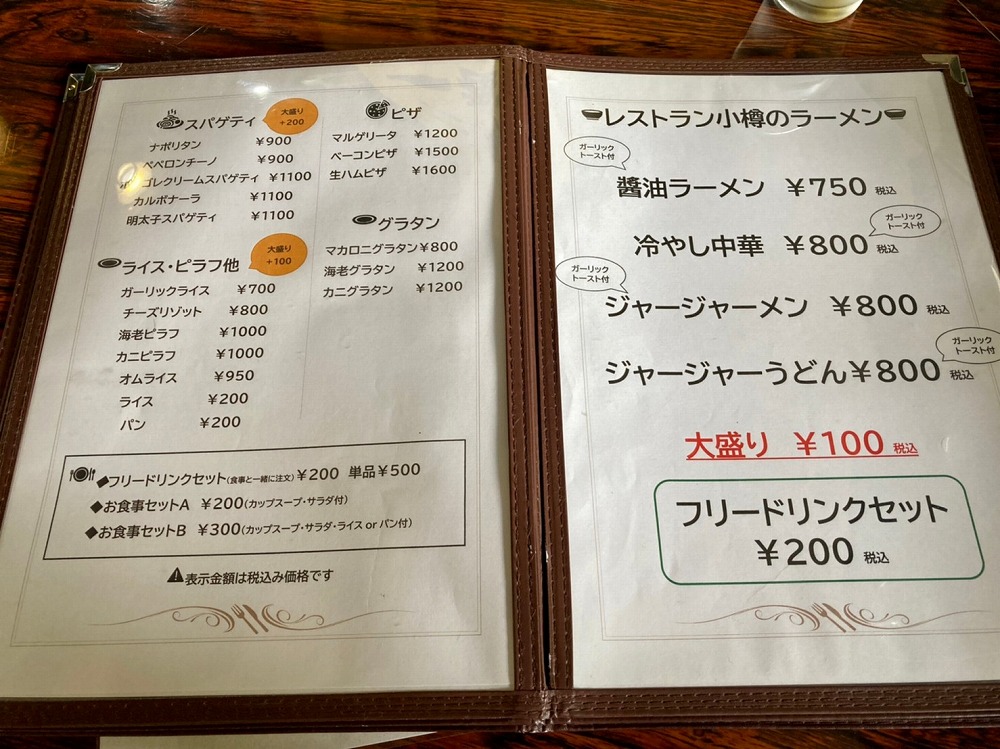 スパゲティ
大盛り
+200
ナポリタン ¥900
ペペロンチーノ ¥900
ゴレクリームスパゲティ ¥1100
カルボナーラ ¥1100
明太子スパゲティ ¥1100
ライス・ピラフ他
大盛り
+100
ガーリックライス ¥700
チーズリゾット ¥800
海老ピラフ ¥1000
カニピラフ ¥1000
オムライス ¥950
ライス ¥200
パン ¥200
ピザ
マルゲリータ ¥1200
ベーコンピザ ¥1500
生ハムピザ ¥1600
グラタン
マカロニグラタン¥800
海老グラタン ¥1200
カニグラタン ¥1200
◆フリードリンクセット(食事と一緒に注文)¥200 単品¥500
◆お食事セットA ¥200(カップスープ・サラダ付)
◆お食事セットB ¥300(カップスープ・サラダ・ライス or パン付)
表示金額は税込み価格です
レストラン小樽のラーメン
ガーリック
トースト付
醤油ラーメン ¥750 税込
ガーリック
トースト付
冷やし中華 ¥800 税込
ガーリック
トースト付
ジャージャーメン ¥800 税込
ガーリック
トースト付
ジャージャーうどん¥800 税込
大盛り ¥100 税込
フリードリンクセット
¥200 税込